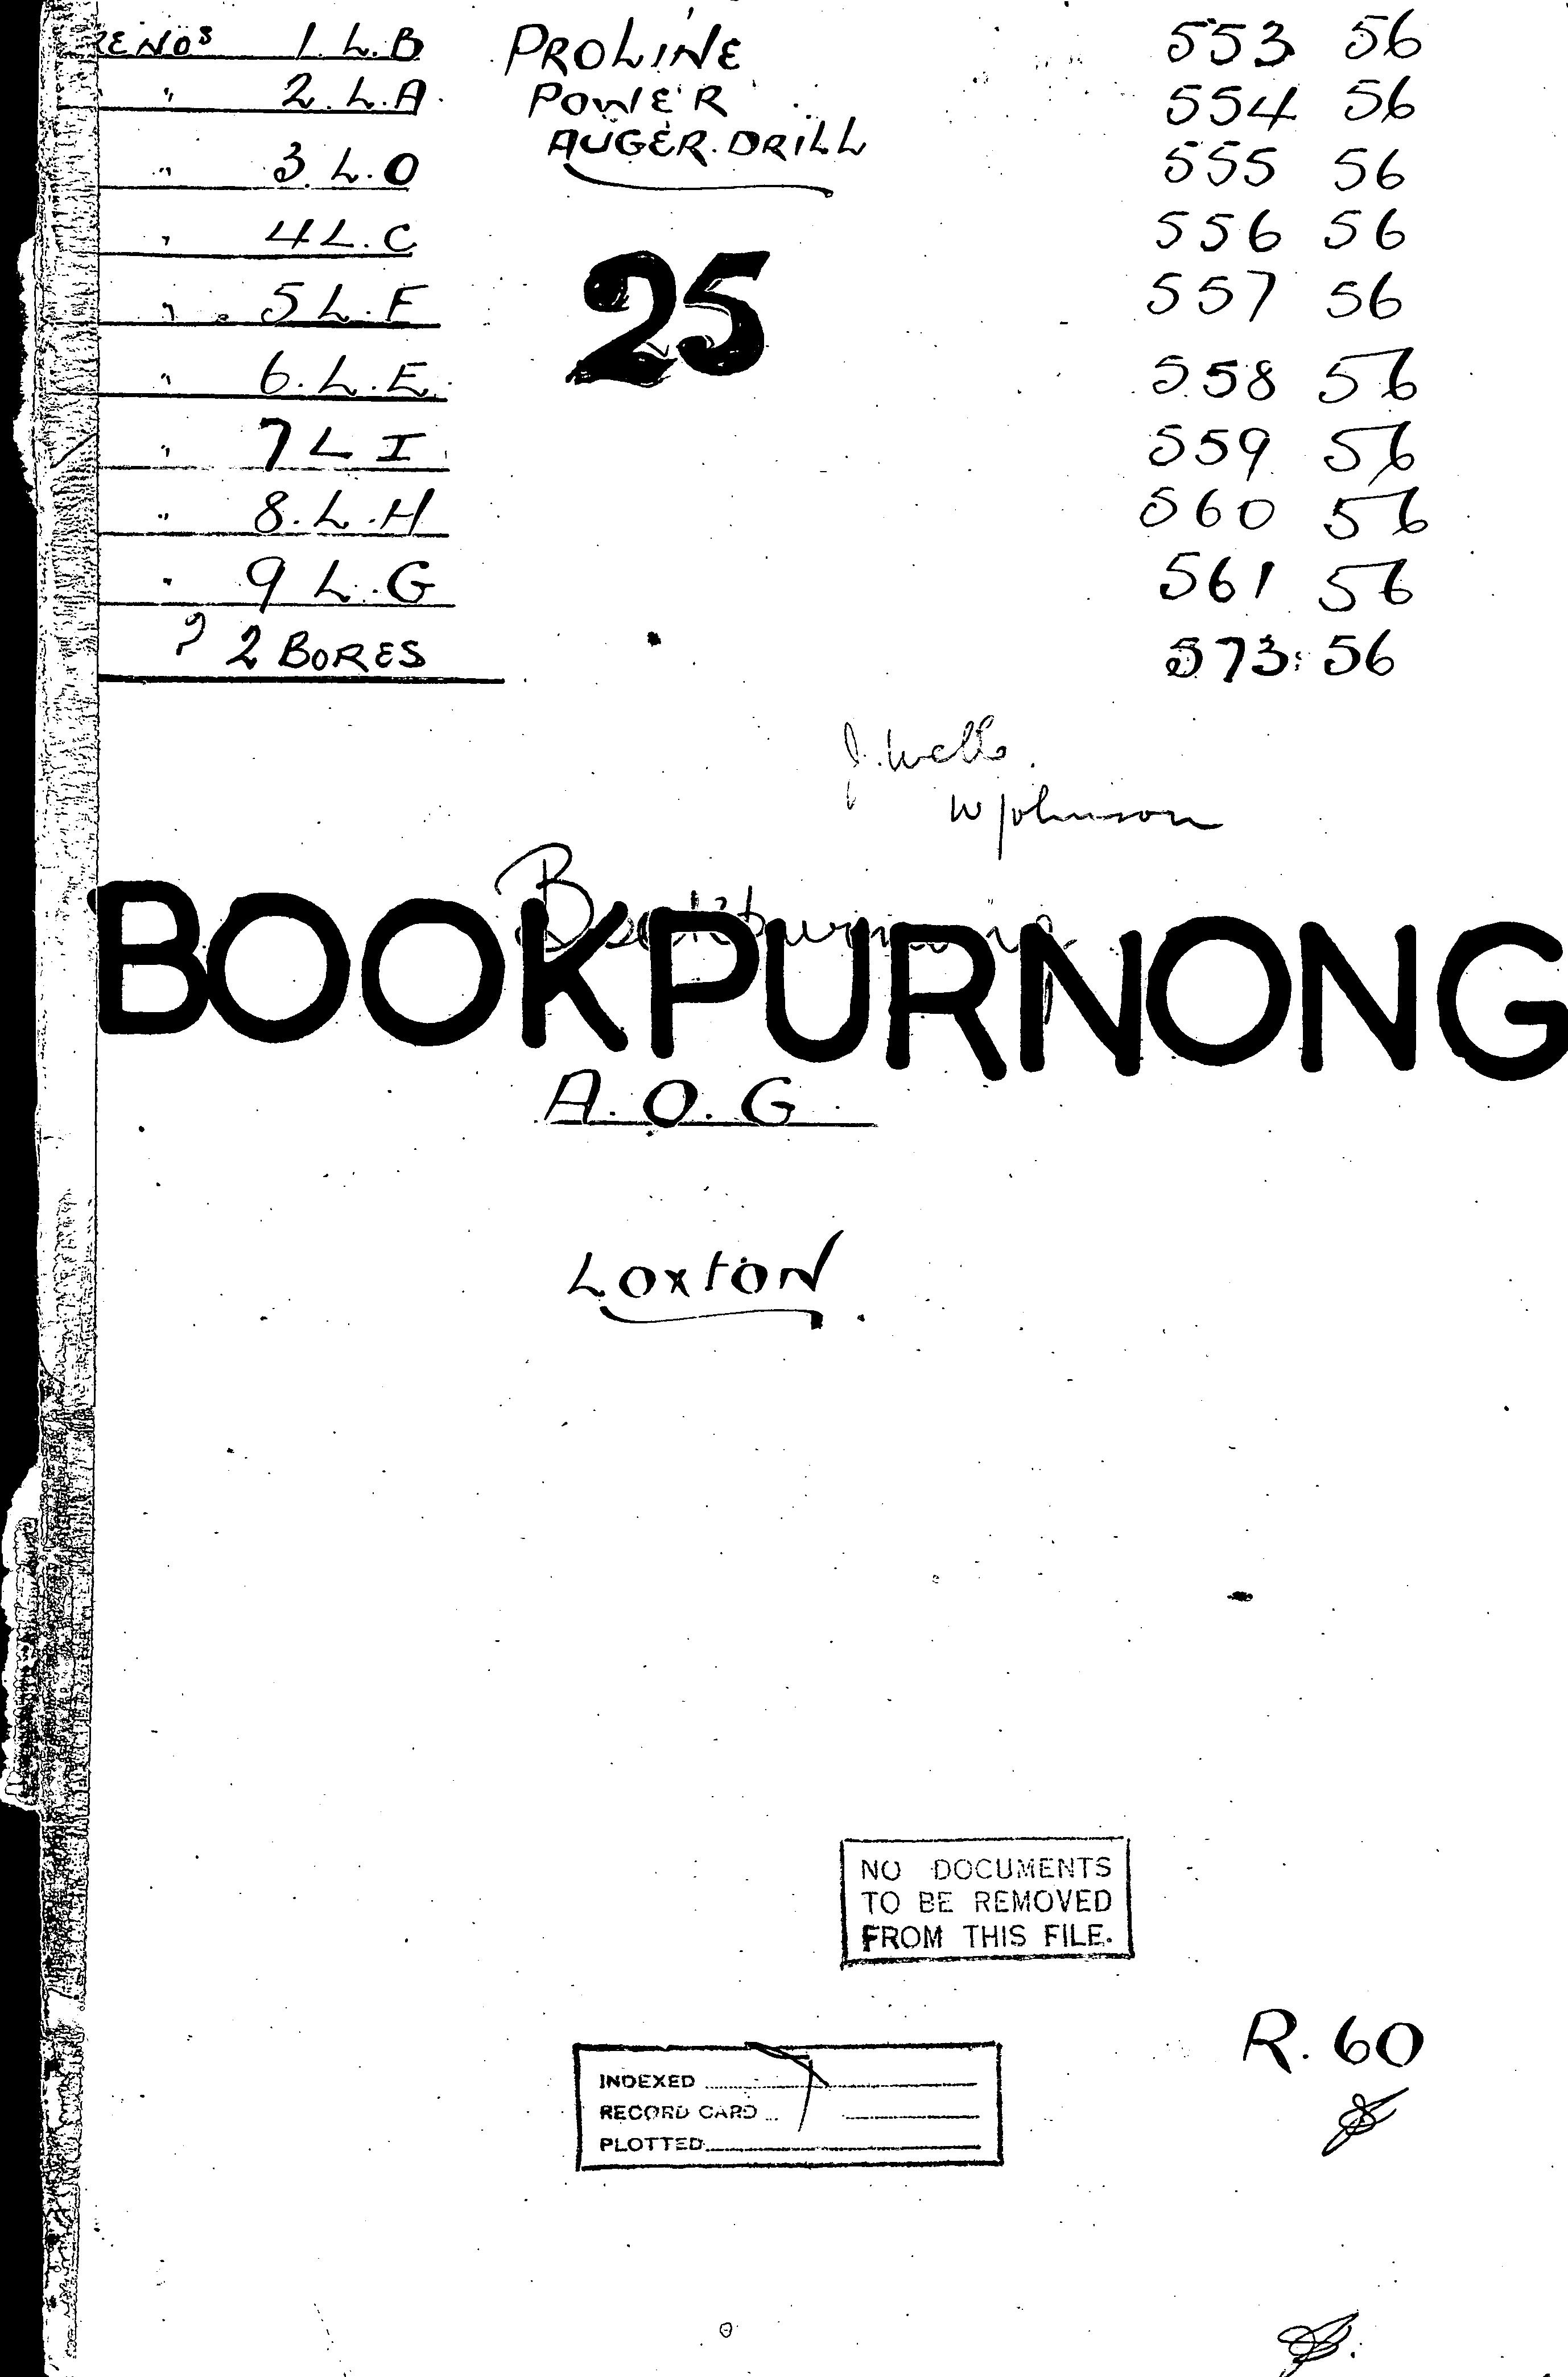 RE NOS 1. L. B PROLINE 553 56
" 2. L. A. POWER 554 56
AUGER. DRILL
" 3. L. O 555 56
" 4 L. C 556 56
" 5 L. F 25 557 56
" 6. L. E. 558 56
" 7 L I 559 56
" 8. L. H 560 56
" 9 L. G 561 56
? 2 BORES 573: 56
J. Wells.
W Johnson
Bookpurnong
BOOKPURNONG
A. O. G.
LOXTON.
NO DOCUMENTS
TO BE REMOVED
FROM THIS FILE.
R. 60
INDEXED
RECORD CARD
PLOTTED